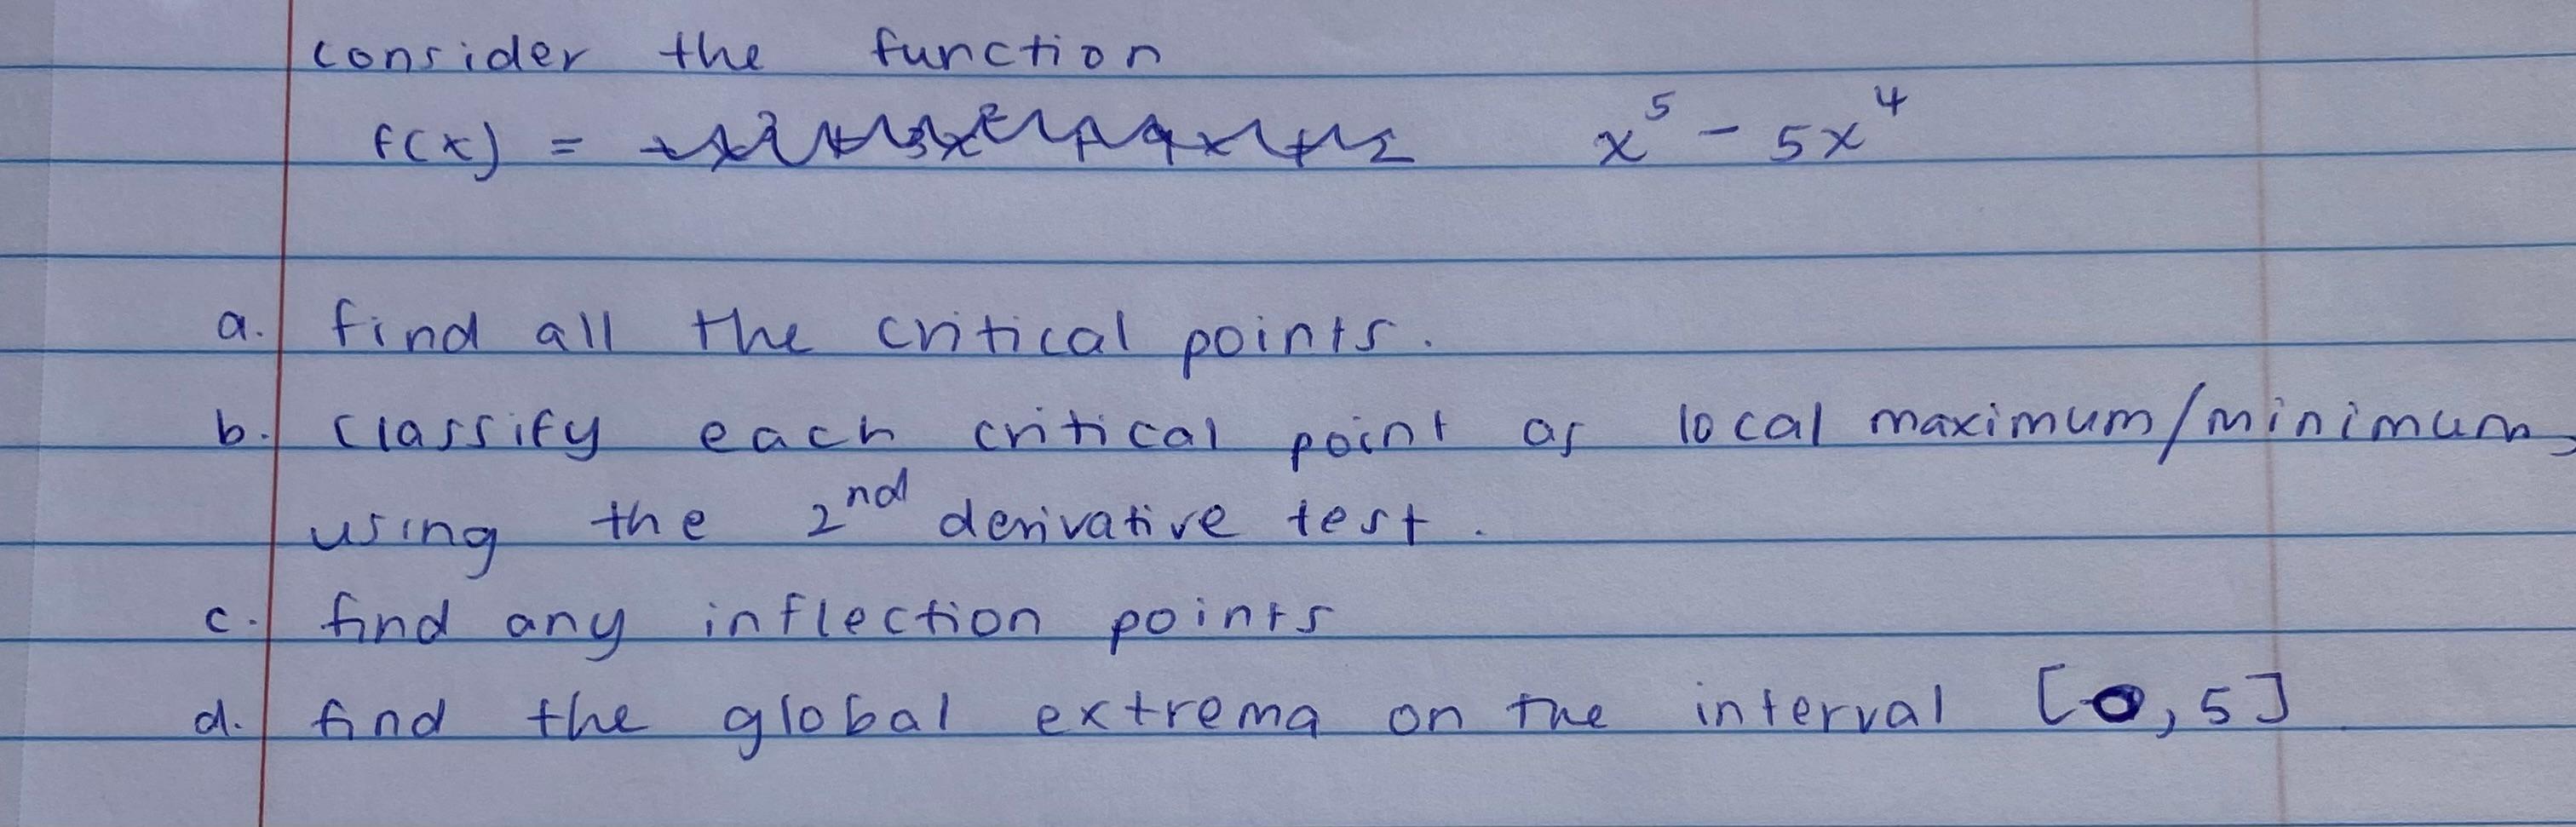 consider the function
f(x) = x⁵ - 5x⁴
a. find all the critical points.
b. classify each critical point as local maximum/minimum,
using the 2nd derivative test.
c. find any inflection points
d. find the global extrema on the interval [0,5]